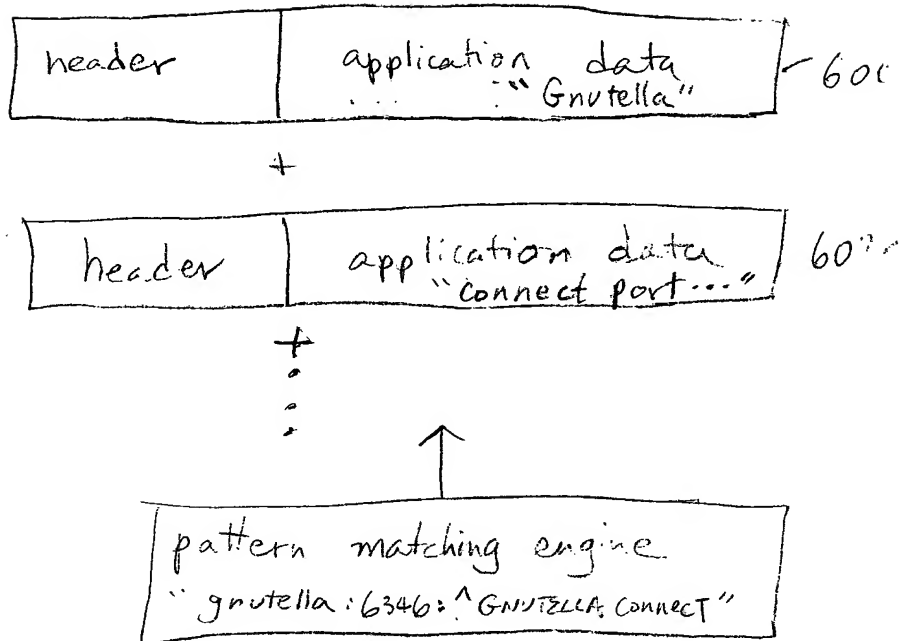 header
application data
... "Gnutella"
+
header
application data
"connect port..."
+
pattern matching engine
"gnutella:6346:^GNUTELLA CONNECT"